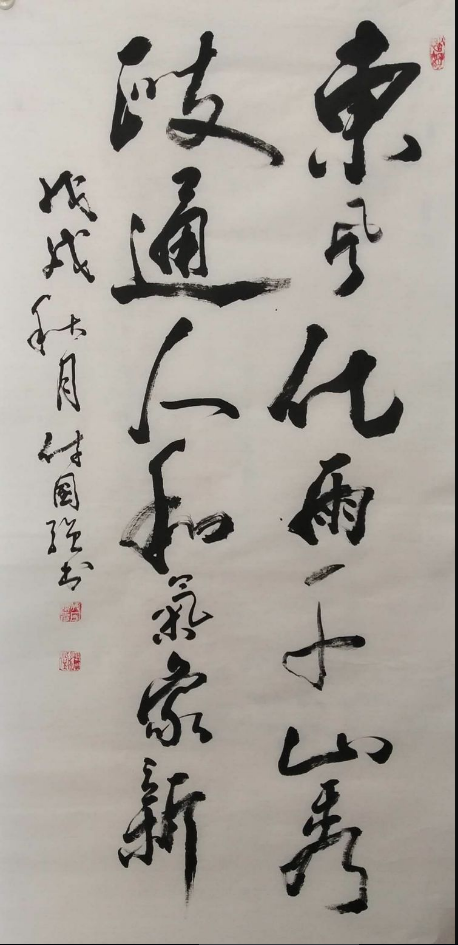 東風化雨千山秀
政通人和氣象新
戊戌秋月付國強书